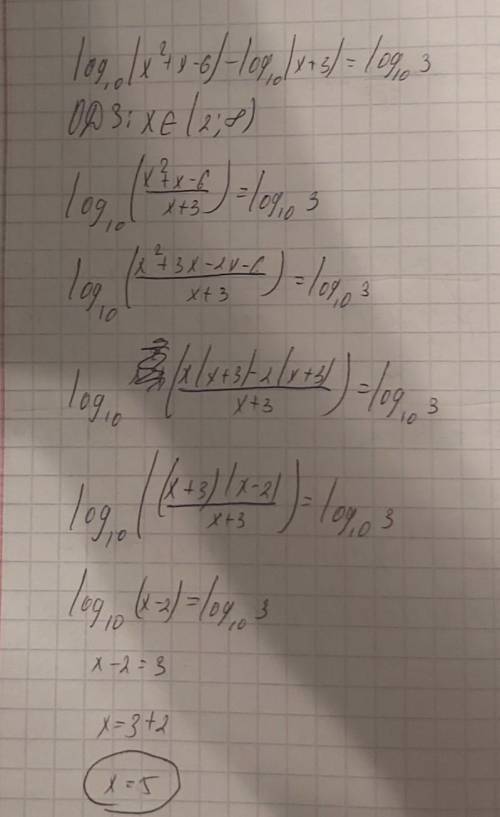 log₁₀(x²+x-6)-log₁₀(x+3)=log₁₀3
ОДЗ: x∈(2;∞)
log₁₀((x²+x-6)/(x+3))=log₁₀3
log₁₀((x²+3x-2x-6)/(x+3))=log₁₀3
log₁₀((x(x+3)-2(x+3))/(x+3))=log₁₀3
log₁₀(((x+3)(x-2))/(x+3))=log₁₀3
log₁₀(x-2)=log₁₀3
x-2=3
x=3+2
x=5